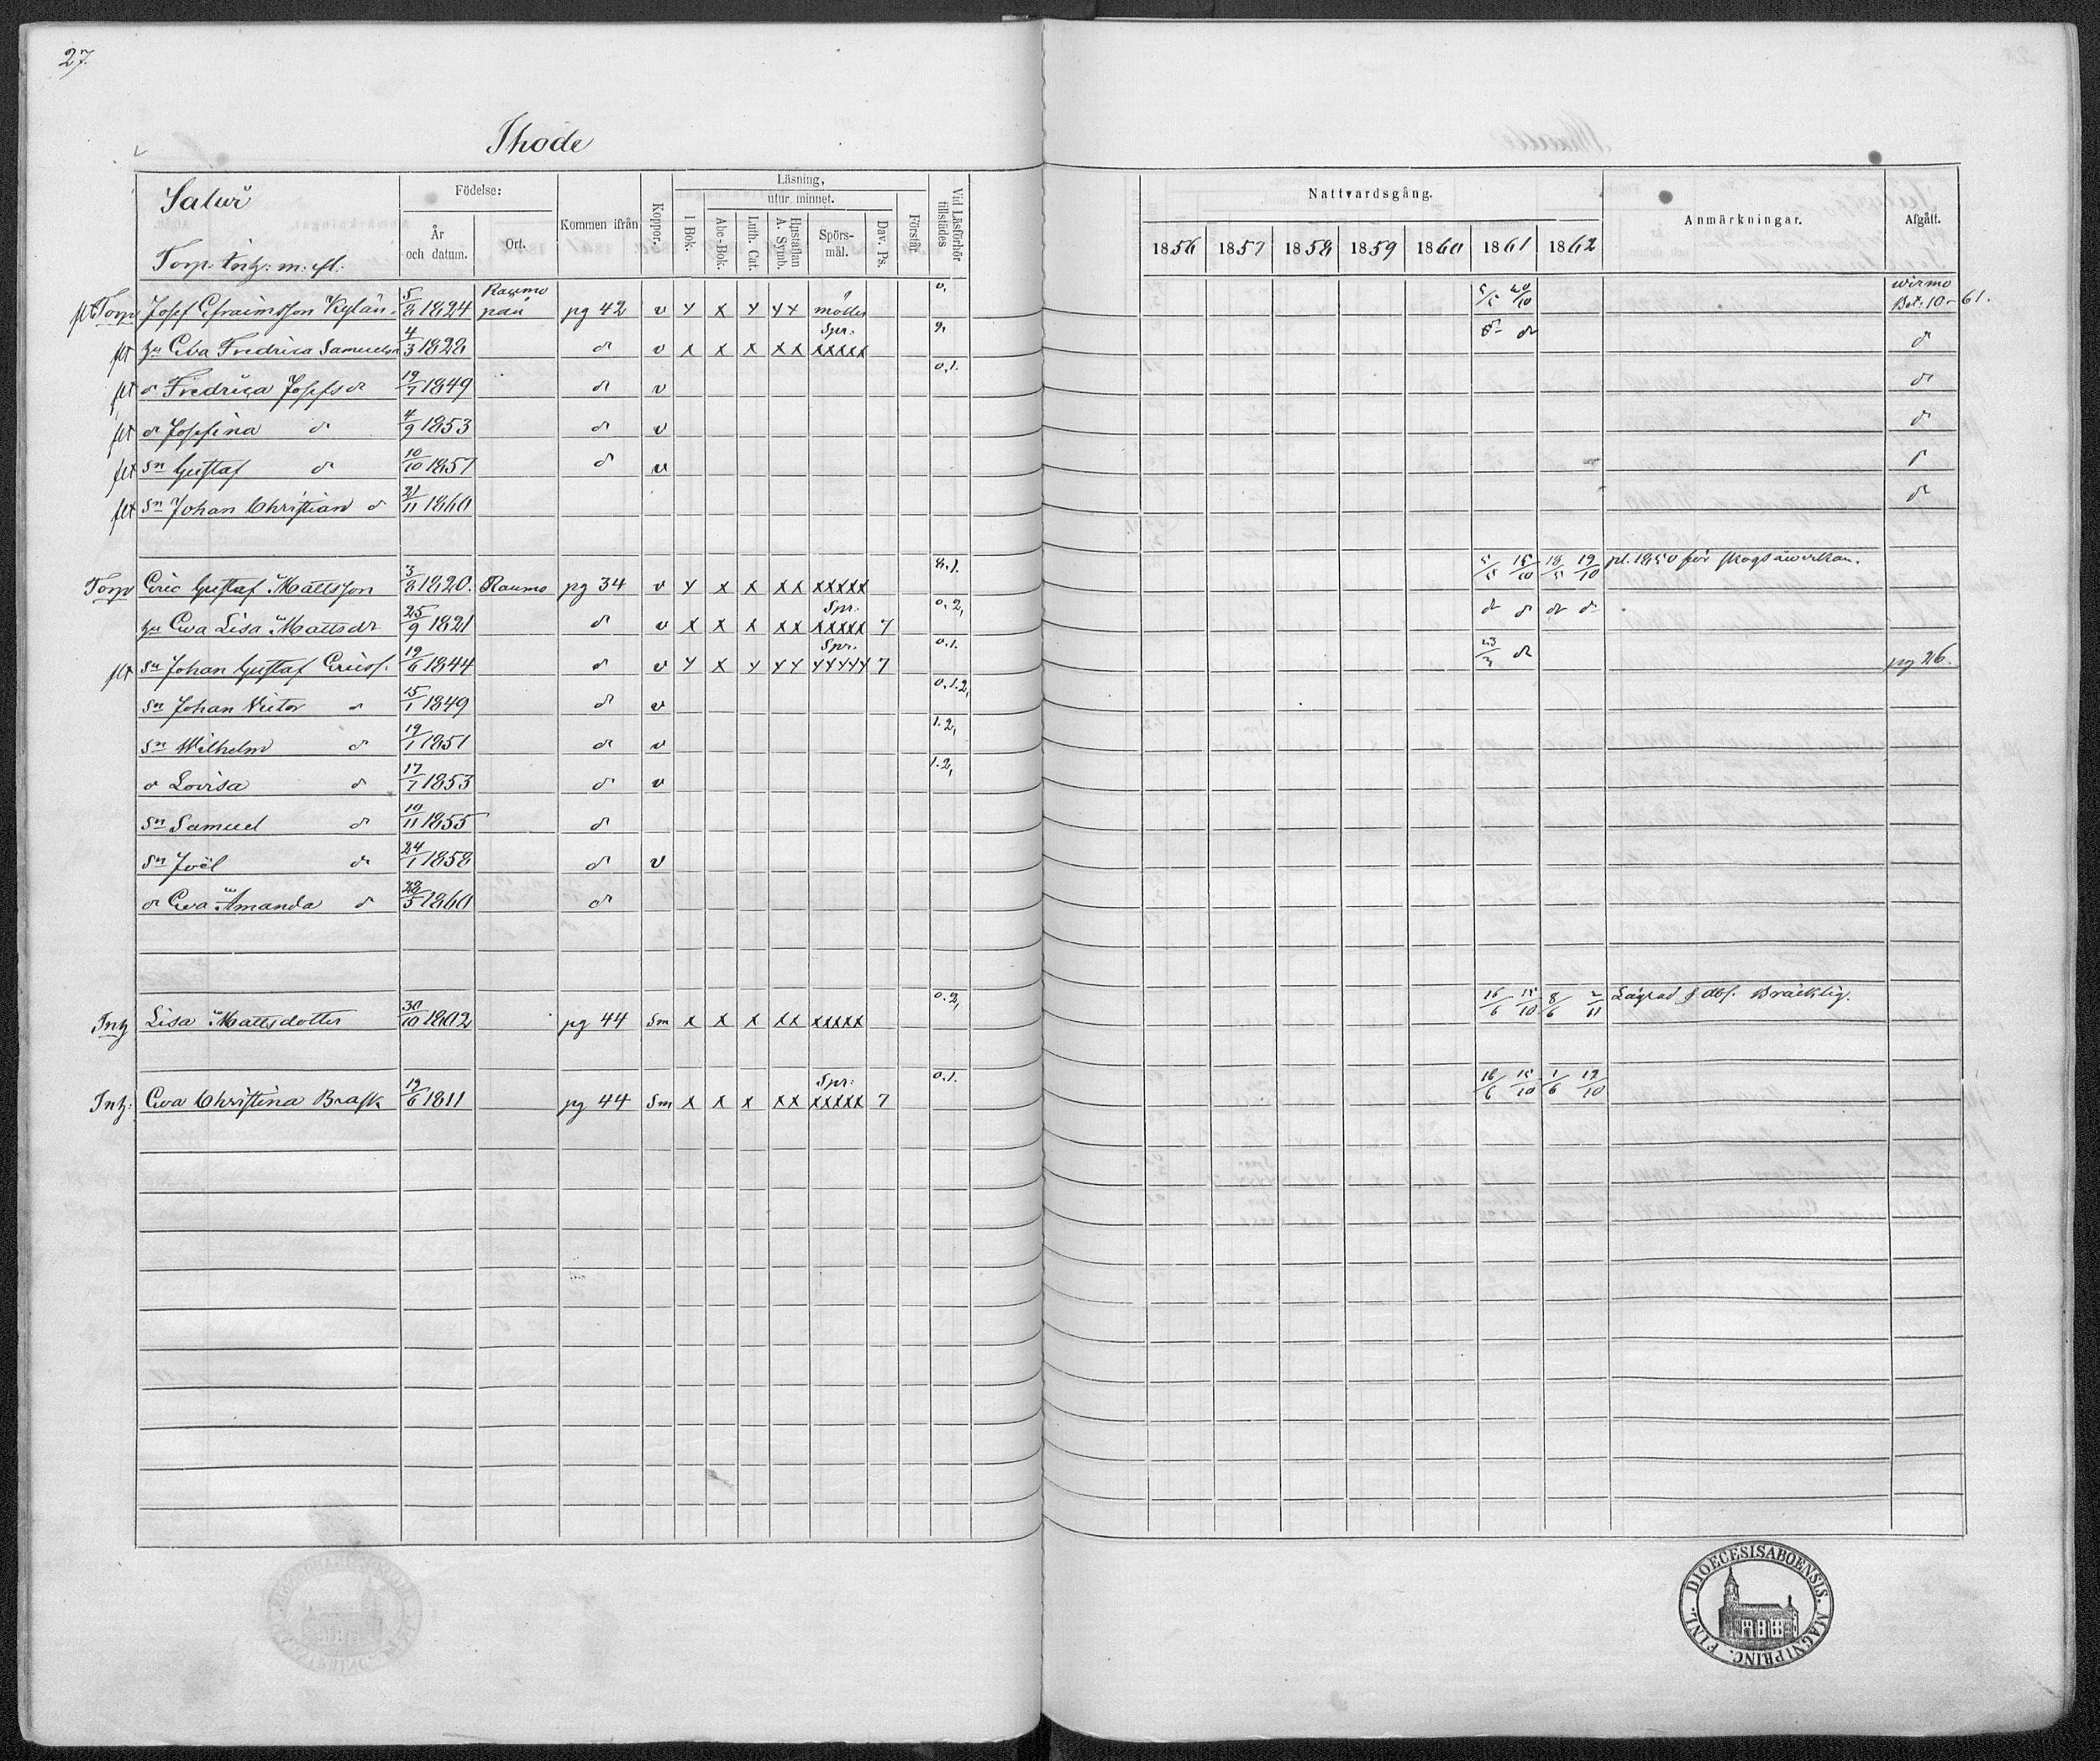 27.
Ihode
Salur
Torp. Inh: m: fl:
Födelse:
År och datum.
Ort.
Kommen ifrån
Koppor.
Läsning,
utur minnet.
I Bok.
Abc-Bok.
Luth. Cat.
Hustaflan A. Symb.
Spörs-mål.
Dav. Ps.
Förstår.
Vid Läsförhör tillstädes
Nattvardsgång.
1856 1857 1858 1859 1860 1861 1862
Anmärkningar.
Afgått.
flt Torp Josef Efraimsson Kylän 5/8 1824 Raumo pg 42 v y x y yy 0, 5/5 20/10 wirmo Bet. 10-61.
flt hu Eva Fredrica Samuelsdr 4/3 1828 d v x x x xx Spr: xxxxx d
flt dr Fredrica Josefsdr 19/7 1849 d v 0,1. d
flt dr Josefina d 4/9 1853 d v d
flt sn Gustaf d 10/10 1857 d v d
flt sn Johan Christian d 21/11 1860 d
Torp Eric Gustaf Mattsson 3/8 1820. Raumo pg 34 v y x x xx xxxxx 0.1. 5/5 15/10 18/5 19/10 pl. 1850 för skogsåwerkan.
hu Ewa Lisa Mattsdr 25/9 1821 d v x x x xx Spr. xxxxx 7 0.2, d d d d
flt sn Johan Gustaf Ericss. 19/6 1844 d v y x y yy Spr. yyyyy 7 0.1. 23/3 d pg 26.
sn Johan Victor d 15/1 1849 d v 0.1.2,
sn Wilhelm d 19/1 1851 d v 1.2,
dr Lovisa d 17/1 1853 d v 1.2,
sn Samuel d 19/11 1855 d
sn Joël d 24/1 1858 d v
dr Ewa Amanda d 22/3 1860 d
Inh Lisa Mattsdotter 30/10 1802 pg 44 Sm x x x xx xxxxx 0.2, 16/6 15/10 8/6 2/11 Lägrad § dbf. Bräcklig.
Inh: Ewa Christina Brask 19/6 1811 pg 44 Sm x x x xx Spr: xxxxx 7 0.1. 16/6 15/10 1/6 19/10
DIOECESIS ABOENSIS. MAGNI PRINC. FINL.